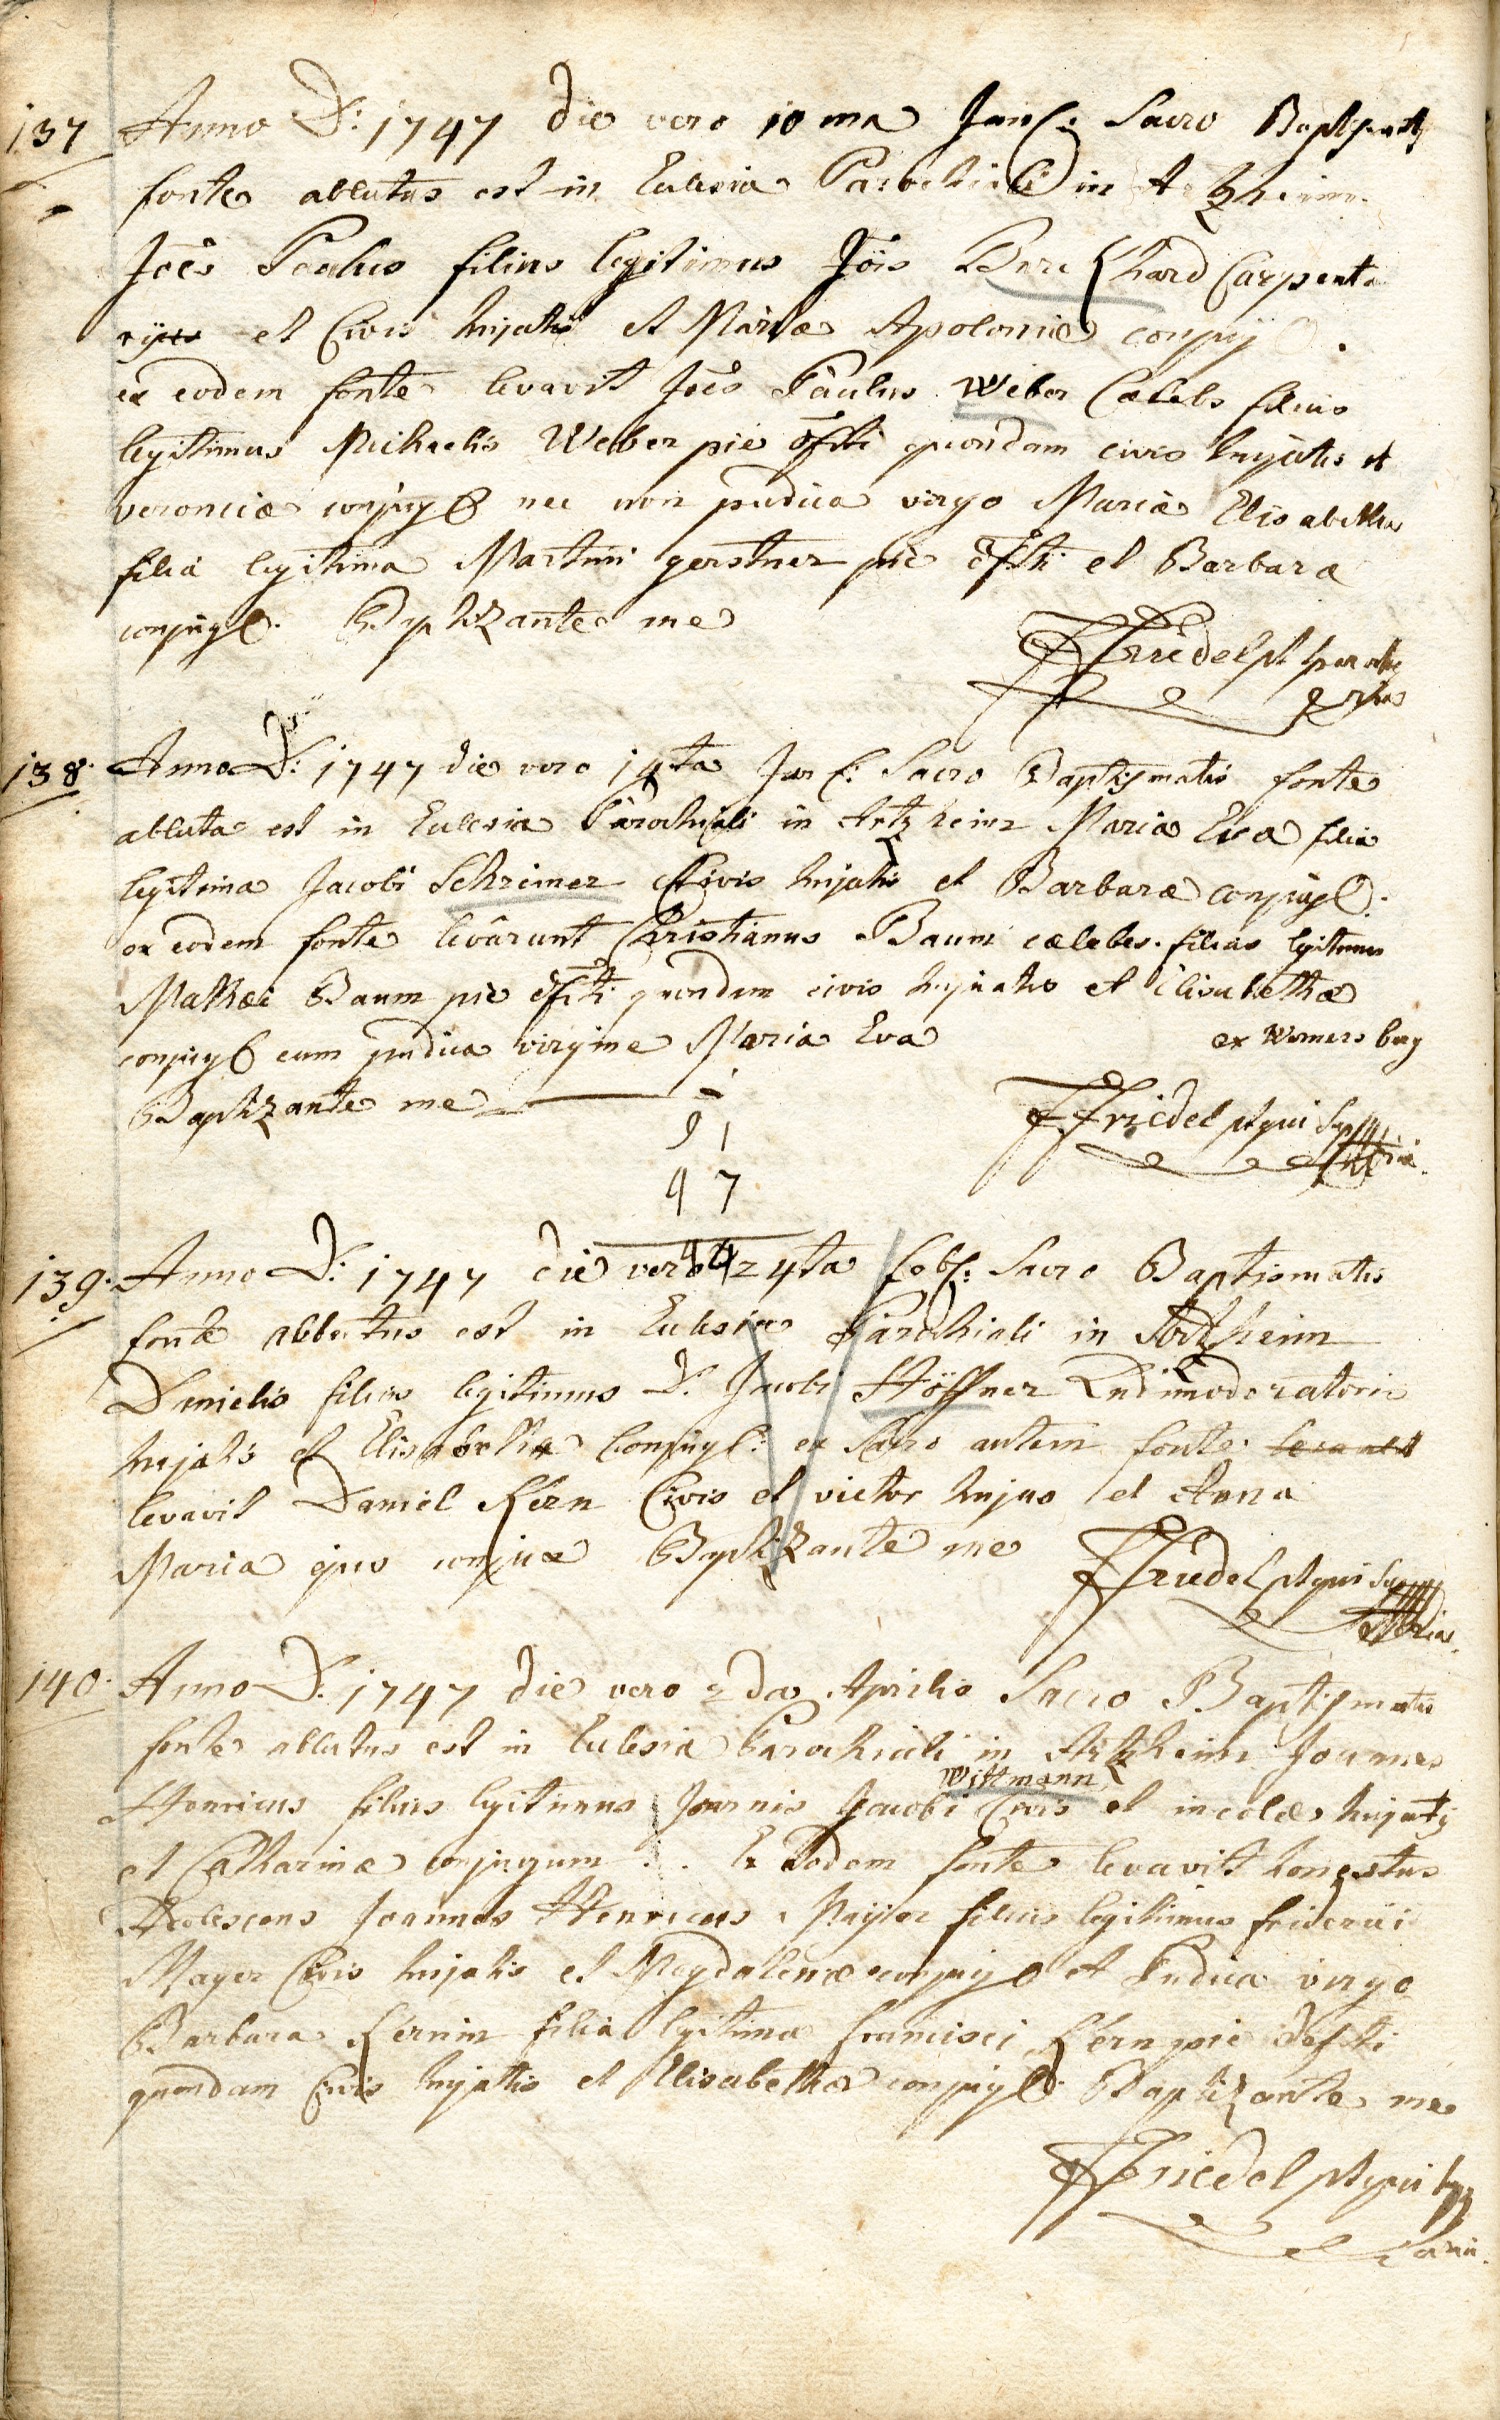 137 Anno D: 1747 die vero 10 ma Jan: Sacro Baptismatis
fonte ablutus est in Eclesia Parochiali in Artzheim
Joës Paulus filius legitimus Jöis Burckhard Carpenta
rij et Civis hujatis et Mariæ Apoloniæ conjug:
ex eodem fonte levavit Joës Paulus Weber Cælebs filius
legitimus Michaelis Weber pie dfti quondam civis hujatis et
veroniciæ conjugū nec non pudica virgo Maria Elisabetha
filia legitima Martini gerstner pie dfti et Barbaræ
conjug. Baptizante me
FFriedel pt
138. Anno D: 1747 die vero 14ta Jan: Sacro Baptismatis fonte
abluta est in Eclesia Parochiali in Artzheim Maria Eva filia
legitima Jacobi Schreiner Civis hujatis et Barbaræ conjug:
ex eodem fonte levârunt Christianus Baum cælebs filius legitimus
Mathæi Baum pie dfti quondam civis hujatis et Elisabethæ
conjug cum pudica virgine Maria Eva ex Wernersberg
Baptizante me
FFriedel pt qui supra
91
47
44
139. Anno D: 1747 die vero 24ta feb: Sacro Baptismatis
fonte ablutus est in Eclesia Parochiali in Artzheim
Danielis filius legitimus D. Jacobi Höffner Ludimoderatoris
hujatis et Elisabethæ Conjug: ex Sacro autem fonte
levavit Daniel Kern Civis et victor hujus et Anna
Maria ejus conjux Baptizante me
FFriedel pt qui supra
140. Anno D: 1747 die vero 2da Aprilis Sacro Baptismatis
fonte ablutus est in Eclesia Parochiali in Artzheim Joannes
Wittmann
Henricus filius legitimus Joannis Jacobi Civis et incolæ hujatis
et Catharinæ conjugum. Ex Eodem fonte levavit honestus
Adolescens Joannes Henricus Mayer filius legitimus friderici
Mayer Civis hujatis et Magdalenæ conjug et Pudica virgo
Barbara Kernin filia legitima francisci Kern pie defti
quondam Civis hujatis et Elisabethæ conjug Baptizante me
FFriedel pt qui supra